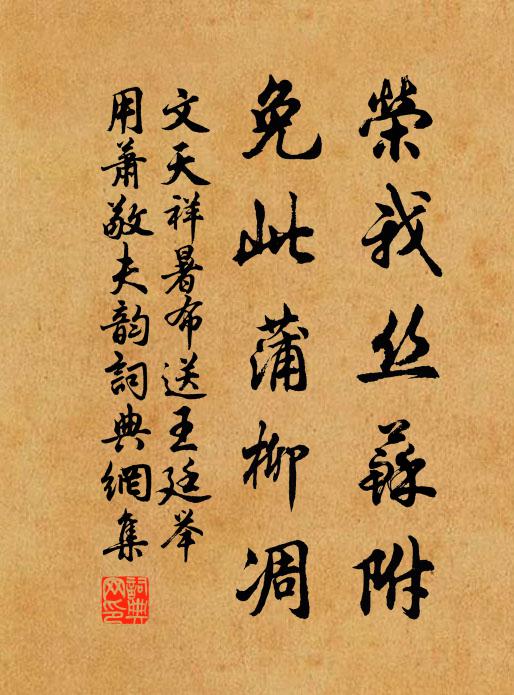 榮我丝蘇附
免此蒲柳凋
文天祥暑布送王廷举
用萧敬夫韵詞典網集
詞典網印